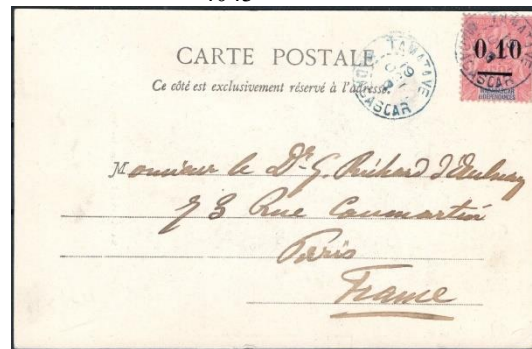 CARTE POSTALE
Ce côté est exclusivement réservé à l'adresse.
TAMATAVE
19
MADAGASCAR
0,10
MADAGASCAR
ET DÉPENDANCES
Monsieur le Dr G. Richard d'Aulnay
73 Rue Caumartin
Paris
France